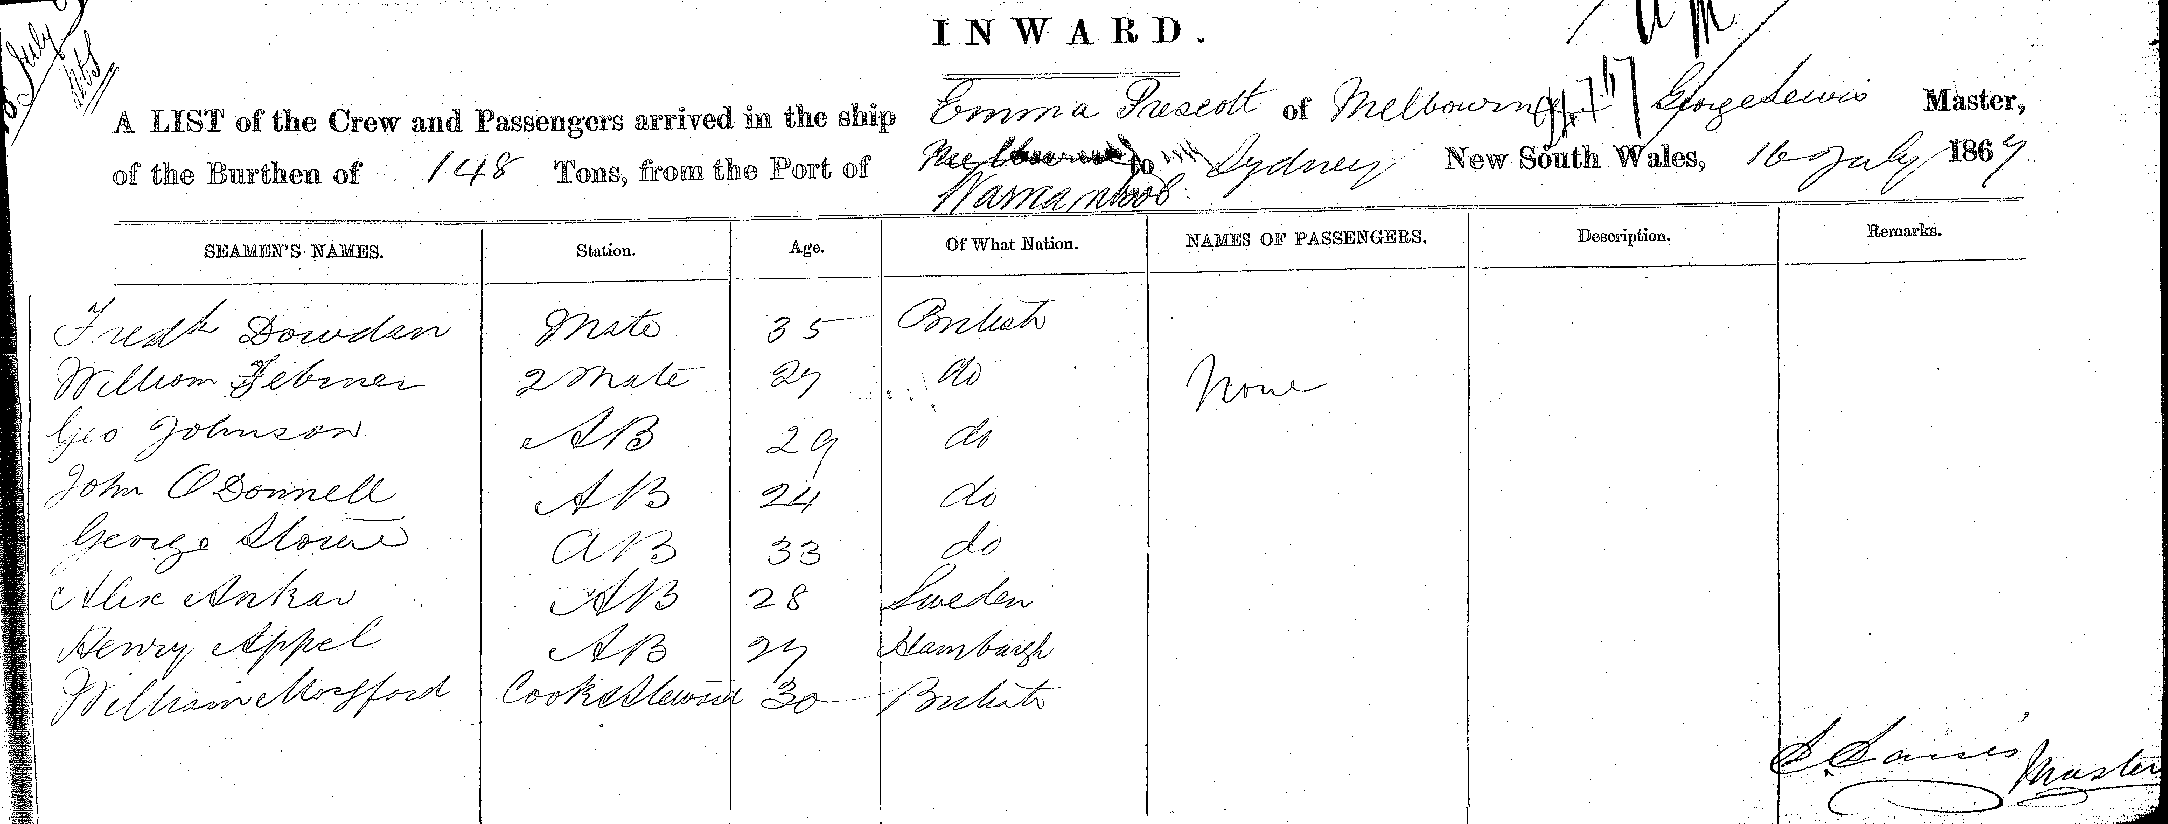 July
INWARD.
A LIST of the Crew and Passengers arrived in the ship Emma Prescott of Melbourne George Lewis Master,
of the Burthen of 148 Tons, from the Port of Warnambool to Sydney New South Wales, 16 July 1867
SEAMEN'S NAMES. Station. Age. Of What Nation. NAMES OF PASSENGERS. Description. Remarks.
Fredk Dowdan Mate 35 British
William Febiner 2 Mate 27 do None
Geo Johnson AB 29 do
John O'Donnell AB 24 do
George Stowe AB 33 do
Alex Ankar AB 28 Sweden
Henry Appel AB 27 Hamburgh
William Mogford Cook & Steward 30 British
Master